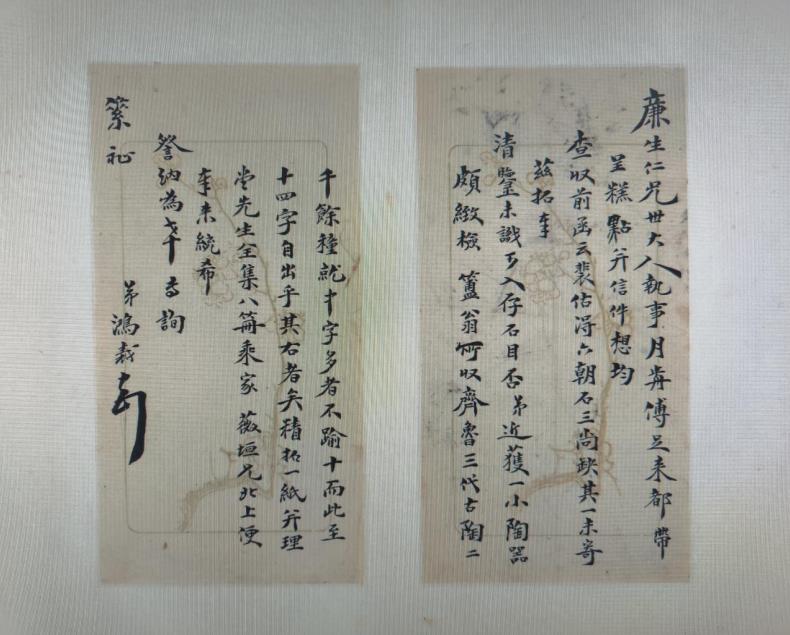 廉生仁兄世大人執事月前傅足来都帶
呈糕點并信件想均
查收前函云裴估得六朝石三尚缺其一未寄
兹拓奉
清鑒未識可入存石目否弟近獲一小陶器
頗緻檢簠翁所收齊魯三代古陶二
千餘種就中字多者不踰十而此至
十四字自出乎其右者矣積拓一紙并理
堂先生全集八冊乘家薇垣兄北上便
奉来統希
詧納為幸専詢
纍祉
弟鴻裁頓